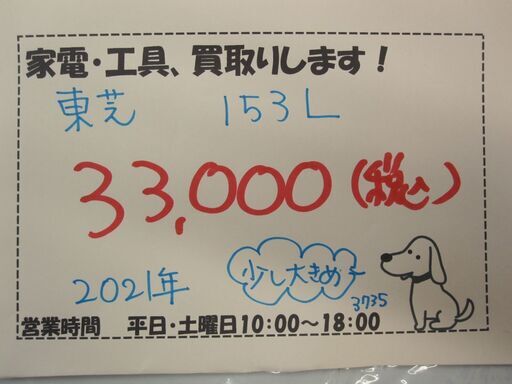 家電・工具、買取りします！
東芝 153L
33,000(税込)
2021年 少し大きめ
3735
営業時間 平日・土曜日10:00～18:00